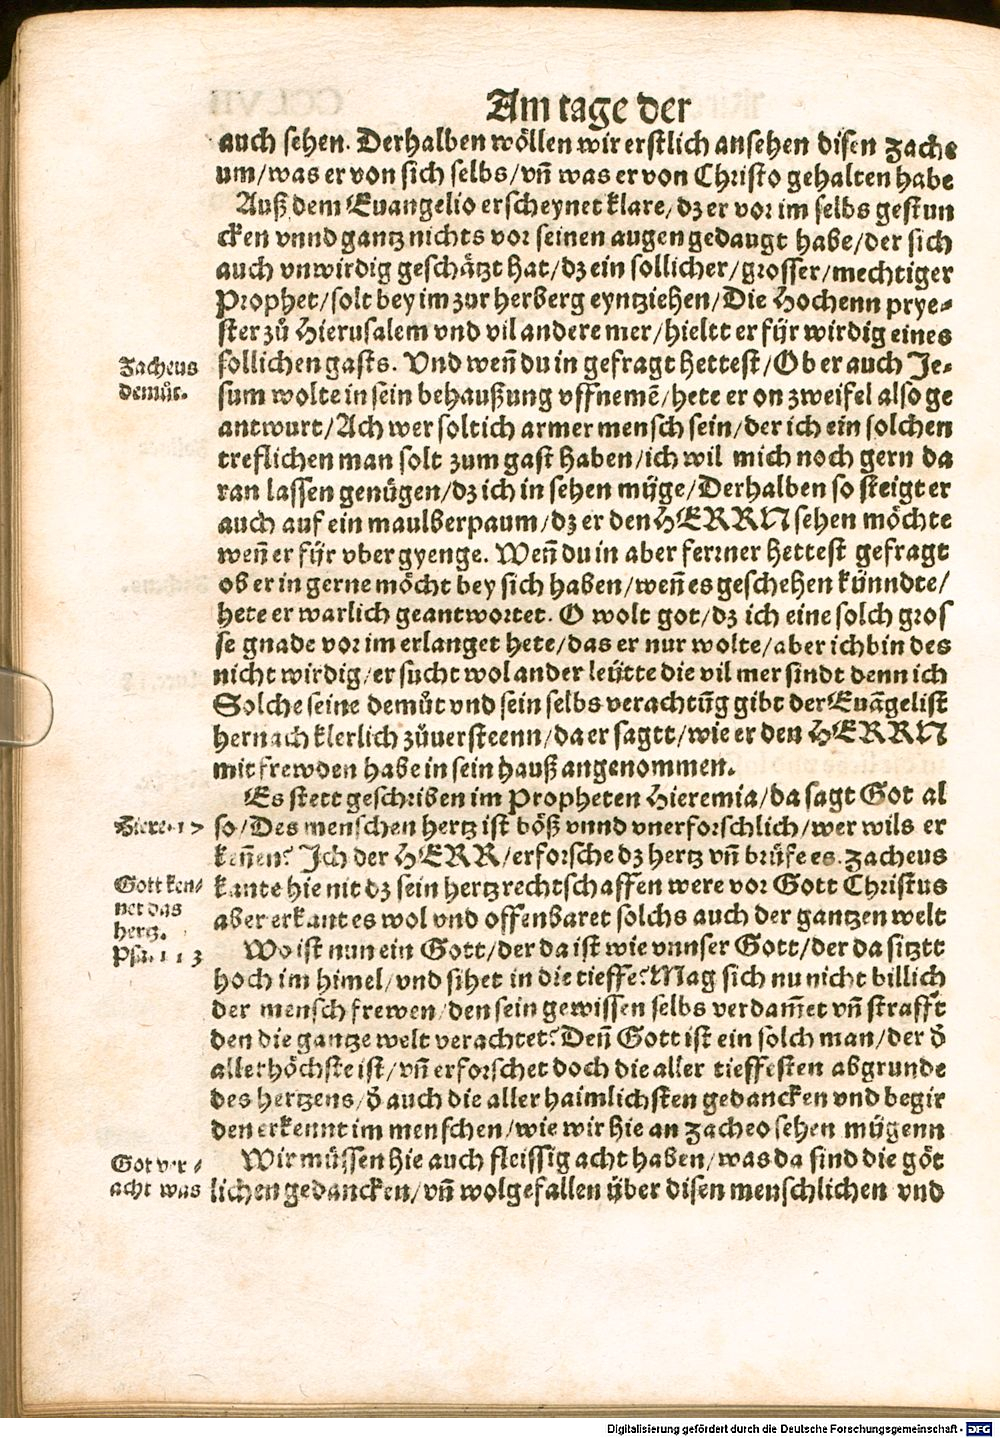 Am tage der
auch sehen. Derhalben wöllen wir erstlich ansehen disen Zache
um/was er von sich selbs/vñ was er von Christo gehalten habe
Auß dem Euangelio erscheynet klare/dz er vor im selbs gestun
cken vnnd gantz nichts vor seinen augen gedaugt habe/der sich
auch vnwirdig geschätzt hat/dz ein sollicher/grosser/mechtiger
Prophet/solt bey im zur herberg eyntziehen/Die Hochenn prye-
ster zů Hierusalem vnd vil andere mer/hieltt er für wirdig eines
Zacheus
demůt.
sollichen gasts. Vnd weñ du in gefragt hettest/Ob er auch Je-
sum wolte in sein behaußung vffnemē/hete er on zweifel also ge
antwurt/Ach wer solt ich armer mensch sein/der ich ein solchen
treflichen man solt zum gast haben/ich wil mich noch gern da
ran lassen genügen/dz ich in sehen müge/Derhalben so steigt er
auch auf ein maulberpaum/dz er den HERRN sehen möchte
weñ er für vber gyenge. Weñ du in aber ferrner hettest gefragt
ob er in gerne möcht bey sich haben/weñ es geschehen künndte/
hete er warlich geantwortet. O wolt got/dz ich eine solch gros
se gnade vor im erlanget hete/das er nur wolte/aber ich bin des
nicht wirdig/er sucht wol ander leütte die vil mer sindt denn ich
Solche seine demůt vnd sein selbs verachtũg gibt der Euãgelist
hernach klerlich zůuersteenn/da er sagtt/wie er den HERRN
mit frewden habe in sein hauß angenommen.
Es stett geschriben im Propheten Hieremia/da sagt Got al
Hiere. 17
so/Des menschen hertz ist böß vnnd vnerforschlich/wer wils er
keñen? Ich der HERR/erforsche dz hertz vñ brüfe es. Zacheus
Gott ken-
net das
hertz.
Psa. 113
kante hie nit dz sein hertz rechtschaffen were vor Gott Christus
aber erkant es wol vnd offenbaret solchs auch der gantzen welt
Wo ist nun ein Gott/der da ist wie vnnser Gott/der da sitztt
hoch im himel/vnd sihet in die tieffe? Mag sich nu nicht billich
der mensch frewen/den sein gewissen selbs verdam̃et vñ strafft
den die gantze welt verachtet? Deñ Gott ist ein solch man/der d̕
allerhöchste ist/vñ erforschet doch die aller tieffesten abgrunde
des hertzens/d̕ auch die aller haimlichsten gedancken vnd begir
den erkennt im menschen/wie wir hie an Zacheo sehen mügenn
Got ver-
acht was
Wir müssen hie auch fleissig acht haben/was da sind die göt
lichen gedancken/vñ wolgefallen über disen menschlichen vnd
Digitalisierung gefördert durch die Deutsche Forschungsgemeinschaft - DFG